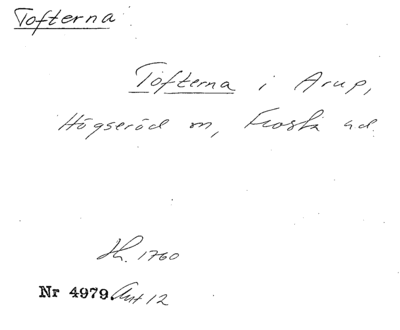 Tofterna
Tofterna i Arup,
Högseröd sn, Frosta hd.
Sk. 1760
Nr 4979. Akt 12